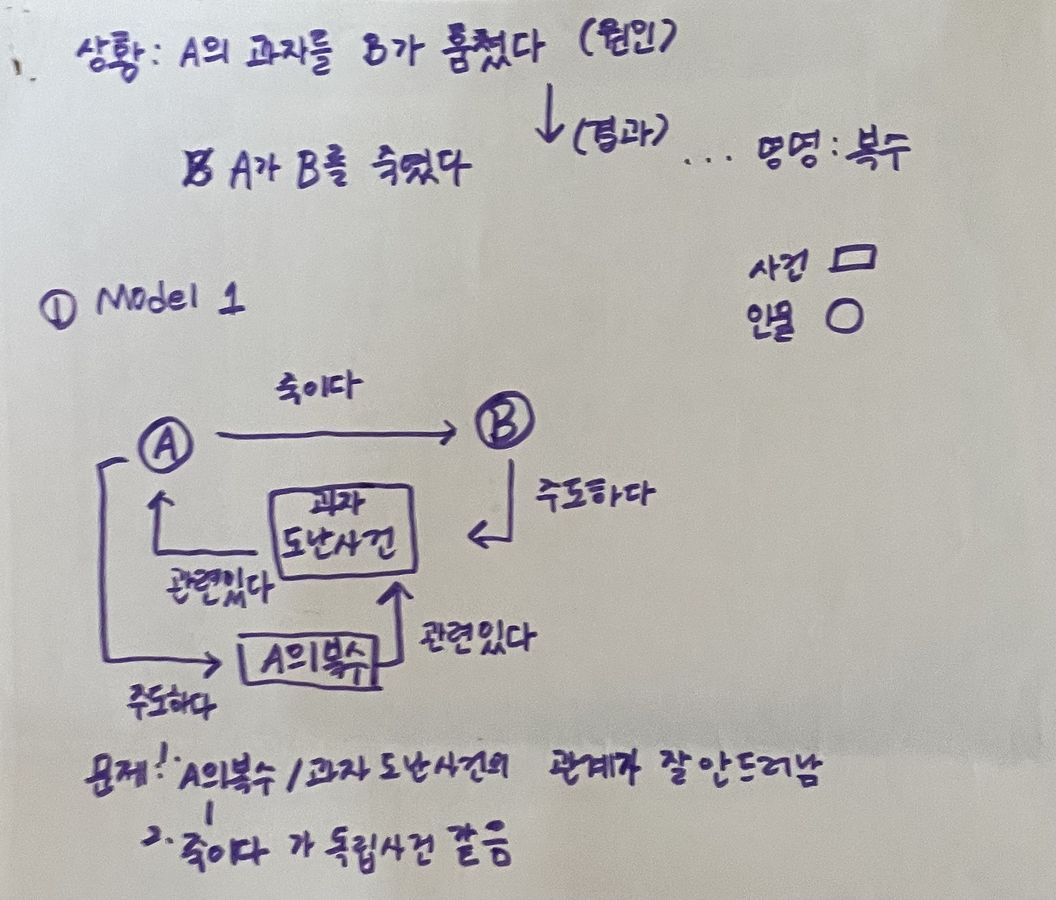 상황: A의 과자를 B가 훔쳤다 (원인)
↓ (결과)
A가 B를 죽였다 ... 명명: 복수
사건 ▭
인물 ○
① Model 1
죽이다
A → B
주도하다
과자
도난사건
관련있다
관련있다
A의 복수
주도하다
문제: 1. A의복수 / 과자 도난사건의 관계가 잘 안드러남
2. 죽이다 가 독립사건 같음